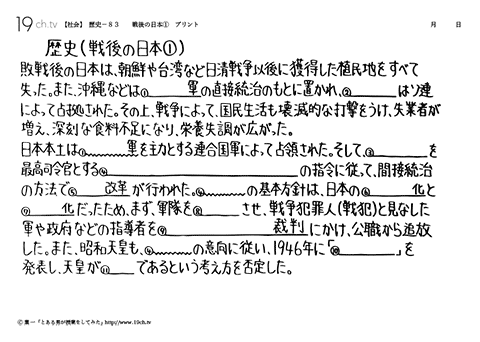 19ch.tv 【社会】 歴史-83 戦後の日本① プリント 月 日
歴史(戦後の日本①)
敗戦後の日本は、朝鮮や台湾など日清戦争以後に獲得した植民地をすべて
失った。また、沖縄などは①____軍の直接統治のもとに置かれ、②____はソ連
によって占拠された。その上、戦争によって、国民生活も壊滅的な打撃をうけ、失業者が
増え、深刻な食料不足になり、栄養失調が広がった。
日本本土は____軍を主力とする連合国軍によって占領された。そして、____を
最高司令官とする____の指令に従って、間接統治
の方法で____改革が行われた。____の基本方針は、日本の____化と
____化だったため、まず、軍隊を____させ、戦争犯罪人(戦犯)と見なした
軍や政府などの指導者を____裁判にかけ、公職から追放
した。また、昭和天皇も、____の意向に従い、1946年に「____」を
発表し、天皇が____であるという考え方を否定した。
© 葉一「とある男が授業をしてみた」http://www.19ch.tv